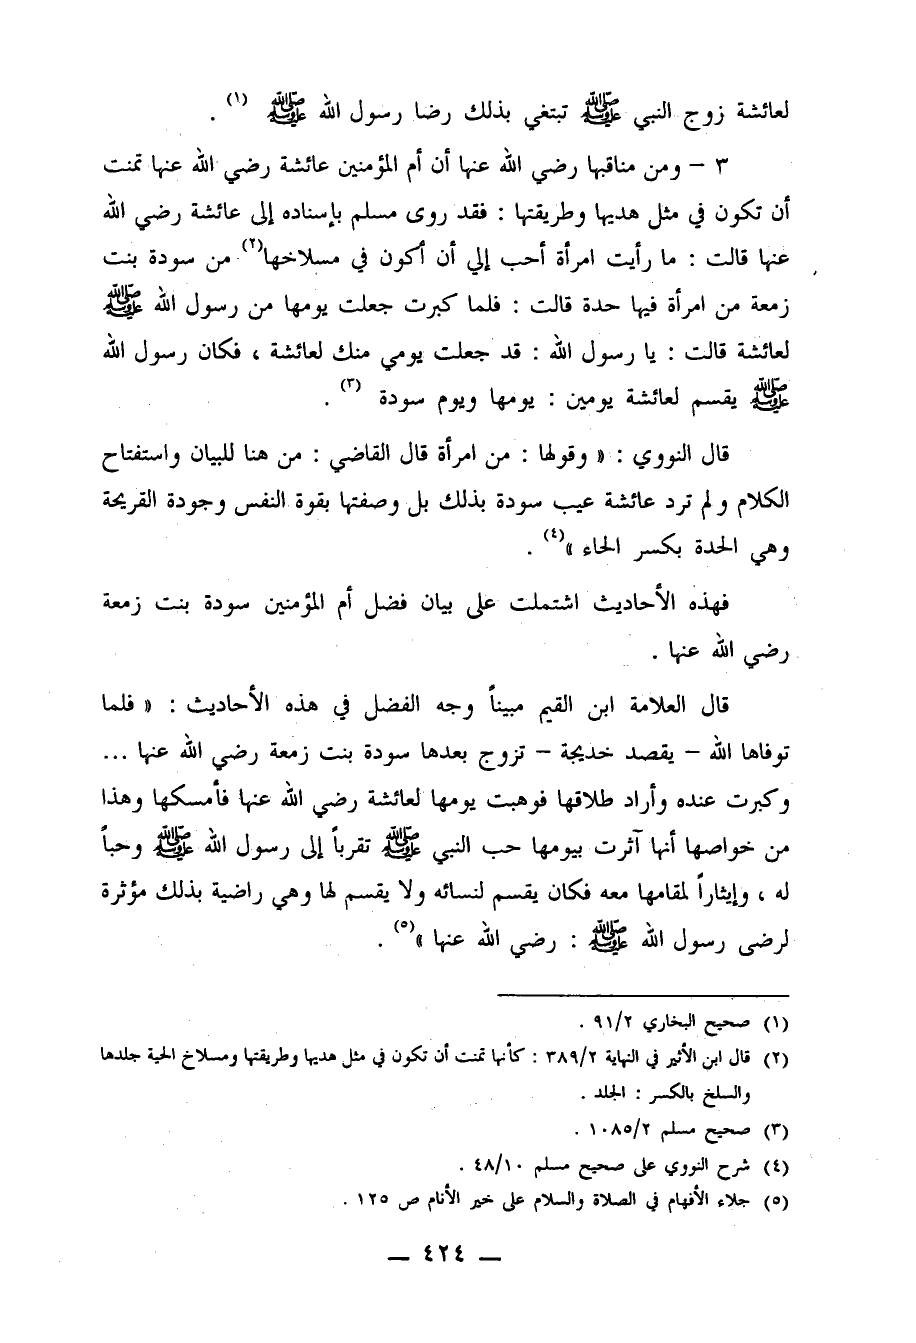 لعائشة زوج النبي ﷺ تبتغي بذلك رضا رسول الله ﷺ (١) .
٣ – ومن مناقبها رضي الله عنها أن أم المؤمنين عائشة رضي الله عنها تمنت
أن تكون في مثل هديها وطريقتها : فقد روى مسلم بإسناده إلى عائشة رضي الله
عنها قالت : ما رأيت امرأة أحب إلي أن أكون في مسلاخها(٢) من سودة بنت
زمعة من امرأة فيها حدة قالت : فلما كبرت جعلت يومها من رسول الله ﷺ
لعائشة قالت : يا رسول الله : قد جعلت يومي منك لعائشة ، فكان رسول الله
ﷺ يقسم لعائشة يومين : يومها ويوم سودة (٣) .
قال النووي : « وقولها : من امرأة قال القاضي : من هنا للبيان واستفتاح
الكلام ولم ترد عائشة عيب سودة بذلك بل وصفتها بقوة النفس وجودة القريحة
وهي الحدة بكسر الحاء »(٤) .
فهذه الأحاديث اشتملت على بيان فضل أم المؤمنين سودة بنت زمعة
رضي الله عنها .
قال العلامة ابن القيم مبيناً وجه الفضل في هذه الأحاديث : « فلما
توفاها الله – يقصد خديجة – تزوج بعدها سودة بنت زمعة رضي الله عنها ...
وكبرت عنده وأراد طلاقها فوهبت يومها لعائشة رضي الله عنها فأمسكها وهذا
من خواصها أنها آثرت بيومها حب النبي ﷺ تقرباً إلى رسول الله ﷺ وحباً
له ، وإيثاراً لمقامها معه فكان يقسم لنسائه ولا يقسم لها وهي راضية بذلك مؤثرة
لرضى رسول الله ﷺ : رضي الله عنها »(٥) .
(١) صحيح البخاري ٩١/٢ .
(٢) قال ابن الأثير في النهاية ٣٨٩/٢ : كأنها تمنت أن تكون في مثل هديها وطريقتها ومسلاخ الحية جلدها
والسلخ بالكسر : الجلد .
(٣) صحيح مسلم ١٠٨٥/٢ .
(٤) شرح النووي على صحيح مسلم ٤٨/١٠ .
(٥) جلاء الأفهام في الصلاة والسلام على خير الأنام ص ١٢٥ .
— ٤٢٤ —